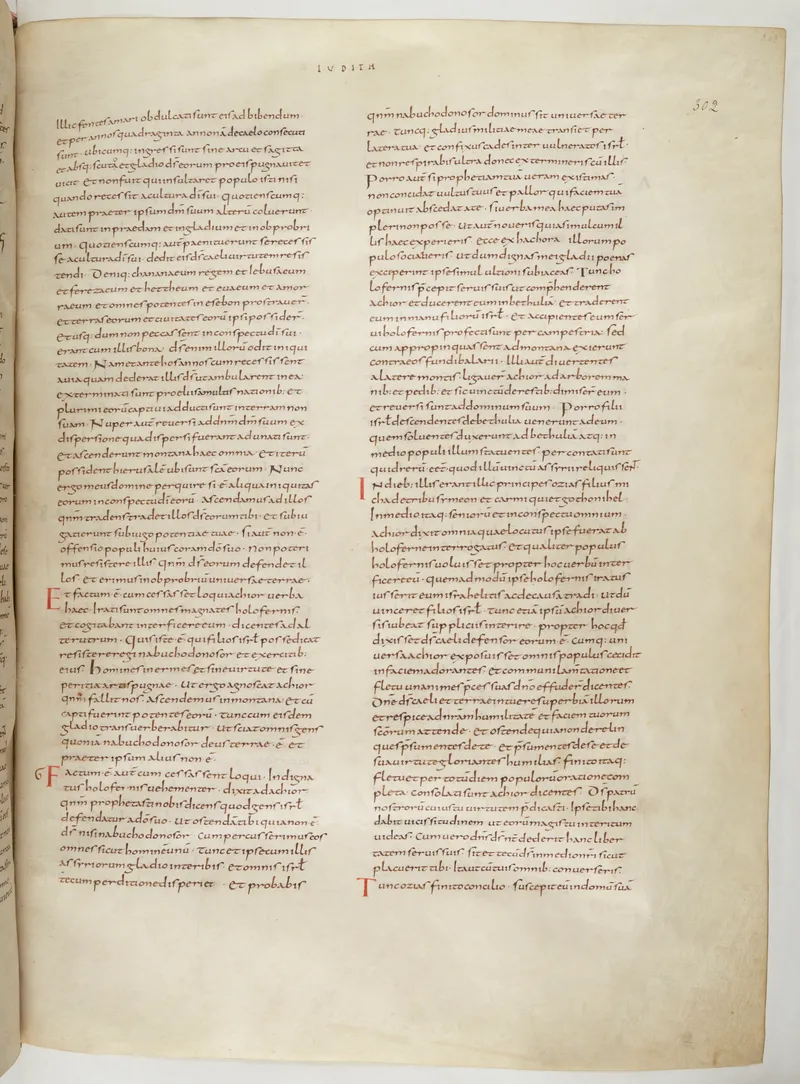 IUDITH
302
Illic fontes amari obdulcati sunt eis ad bibendum·
et per annos quadraginta annonā de caelo consecuti
sunt· ubicumq; ingressi sunt sine arcu et sagitta
et absq; scuto et gladio ds eorum pro eis pugnauit et
uicit· et non fuit qui insultaret populo isti nisi
quando recessit a cultura dni sui· quotienscumq;
autem praeter ipsum dm suum alterū coluerunt·
dati sunt in praedam et in gladium et in obprobri
um· quotienscumq; aut paenituerunt se recessis
se a cultura di sui· dedit eis ds caeli uirtutem resis
tendi· Deniq; chananaeum regem et iebusaeum
et ferezaeum et hettheum et euaeum et amor
raeum et omnes potentes in esebon prostrauer·
et terras eorum et ciuitates eorū ipsi possider·
et usq; dum non peccassent in conspectu di sui·
erant cum illis bona· ds enim illorū odit iniqui
tatem· Nam et ante hos annos cum recessissent
a uia quam dederat illis ds ut ambularent in ea·
exterminati sunt proeliis a multis nationib; et
plurimi eorū captiui adducti sunt in terram non
suam· Nuper aut reuersi ad dnm dm suum ex
dispersione qua dispersi fuerant adunati sunt·
et ascenderunt montana haec omnia· et iterū
possident hierusalē ubi sunt scā eorum· Nunc
ergo meus domine perquire si ē aliqua iniquitas
eorum in conspectu di eorū· Ascendamus ad illos
qnm tradens tradet illos ds eorum tibi· et subiu
gati erunt sub iugo potentiae tuae· Si aut non ē
offensio populi huius coram do suo· non poteri
mus resistere illis qnm ds eorum defendet il
los· et erimus in obprobriū uniuersae terrae·
Et factum ē cum cessasset loqui achior uerba
haec· Irati sunt omnes magnates holofernis·
et cogitabant interficere eum· dicentes ad al
terutrum· Quis iste ē qui filios isrł posse dicat
resistere regi nabuchodonosor et exercitib;
eius· Homines inermes et sine uirtute et sine
peritia artis pugnae· Ut ergo agnoscat achior
qnm fallit nos· Ascendemus in montana· et cū
capti fuerint potentes eorū· tunc cum eisdem
gladio transuerberabitur· Ut sciat omnis gens
quoniā nabuchodonosor deus terrae ē· et
praeter ipsum alius non ē·
Factum ē aut cum cessassent loqui· Indigna
tus holofernis uehementer· dixit ad achior·
qnm prophetasti nobis dicens quod gens isrł
defendatur a do suo· Ut ostendā tibi quia non ē
ds nisi nabuchodonosor· Cum percusserimus eos
omnes sicut hominē unū· Tunc et ipse cum illis
assyriorum gladio interibis· et omnis isrł
tecum perditione disperiet· et probabis
qnm nabuchodonosor dominus sit uniuersae ter
rae· Tuncq; gladius militiae meae transiet per
latera tua· et confixus cades inter uulneratos isrł·
et non respirabis ultra donec extermineris cū illis·
Porro aut si prophetiam tuā ueram existimas·
non concidat uultus tuus et pallor qui faciem tuā
optinuit abscedat a te· si uerba mea haec putas im
pleri non posse· Ut aut noueris quia simul cum il
lis haec experieris· ecce ex hac hora illorum po
pulo sociaberis· ut dum dignas mei gladii poenas
exceperint ipse simul ultioni subiaceas· Tunc ho
lofernis pcepit seruis suis ut comphenderent
achior et ducerent eum in bethulia· et traderent
eum in manu filiorū isrł· et accipientes eum ser
ui holofernis profecti sunt per campestria· sed
cum appropinquassent ad montana exierunt
contra eos fundibalarii· Illi aut diuertentes
a latere montis ligauer achior ad arborem ma
nib; et pedib; et sic uinctū de restib; dimiser eum·
et reuersi sunt ad dominum suum· Porro filii
isrł descendentes de bethulia uenerunt ad eum·
quem soluentes duxerunt ad bethulia atq; in
medio populi illum statuentes percontati sunt
quid rerū eet· quod illū uinctū assyrii reliquissent·
In dieb; illis erant illic principes ozias filius mi
cha de tribu symeon et carmi qui et gothonihel·
In medio itaq; seniorū et in conspectu omnium·
achior dixit omnia quae locutus ipse fuerat ab
holoferne interrogatus· et qualiter populus
holofernis uoluisset propter hoc uerbū inter
ficere eū· quemadmodū ipse holofernis iratus
iusserit eum israhelitis ac de causa tradi· ut dū
uincere filios isrł· tunc etiā ipsū achior diuer
sis iubeat suppliciis interire· propter hoc qd
dixisset ds caeli defensor eorum ē· cumq; uni
uersa achior exposuisset omnis populus cecidit
in faciem adorantes· et communi lamtatione et
fletu unanimes pces suas dno effuder dicentes·
Dne ds caeli et terrae intuere superbiā illorum
et respice ad nrām humilitatē et faciem tuorum
scorum attende· et ostende quia non derelin
quis psumentes de te· et psumentes de se et de
sua uirtute gloriantes humilias· finito itaq;
fletu et per totū diem populorū oratione com
pleta· consolati sunt achior dicentes· Ds patrū
nostrorū cuius tu uirtutem pdicasti· Ipse tibi hanc
dabit uicissitudinem ut eorū magis tu interitum
uideas· Cum uero dns ds nr dederit hanc liber
tatem seruis suis· sit et tecū ds in medio nri sicut
placuerit tibi· Ita ut cū tuis omnib; conuerseris·
Tunc ozias finito concilio· suscepit eū in domū suā